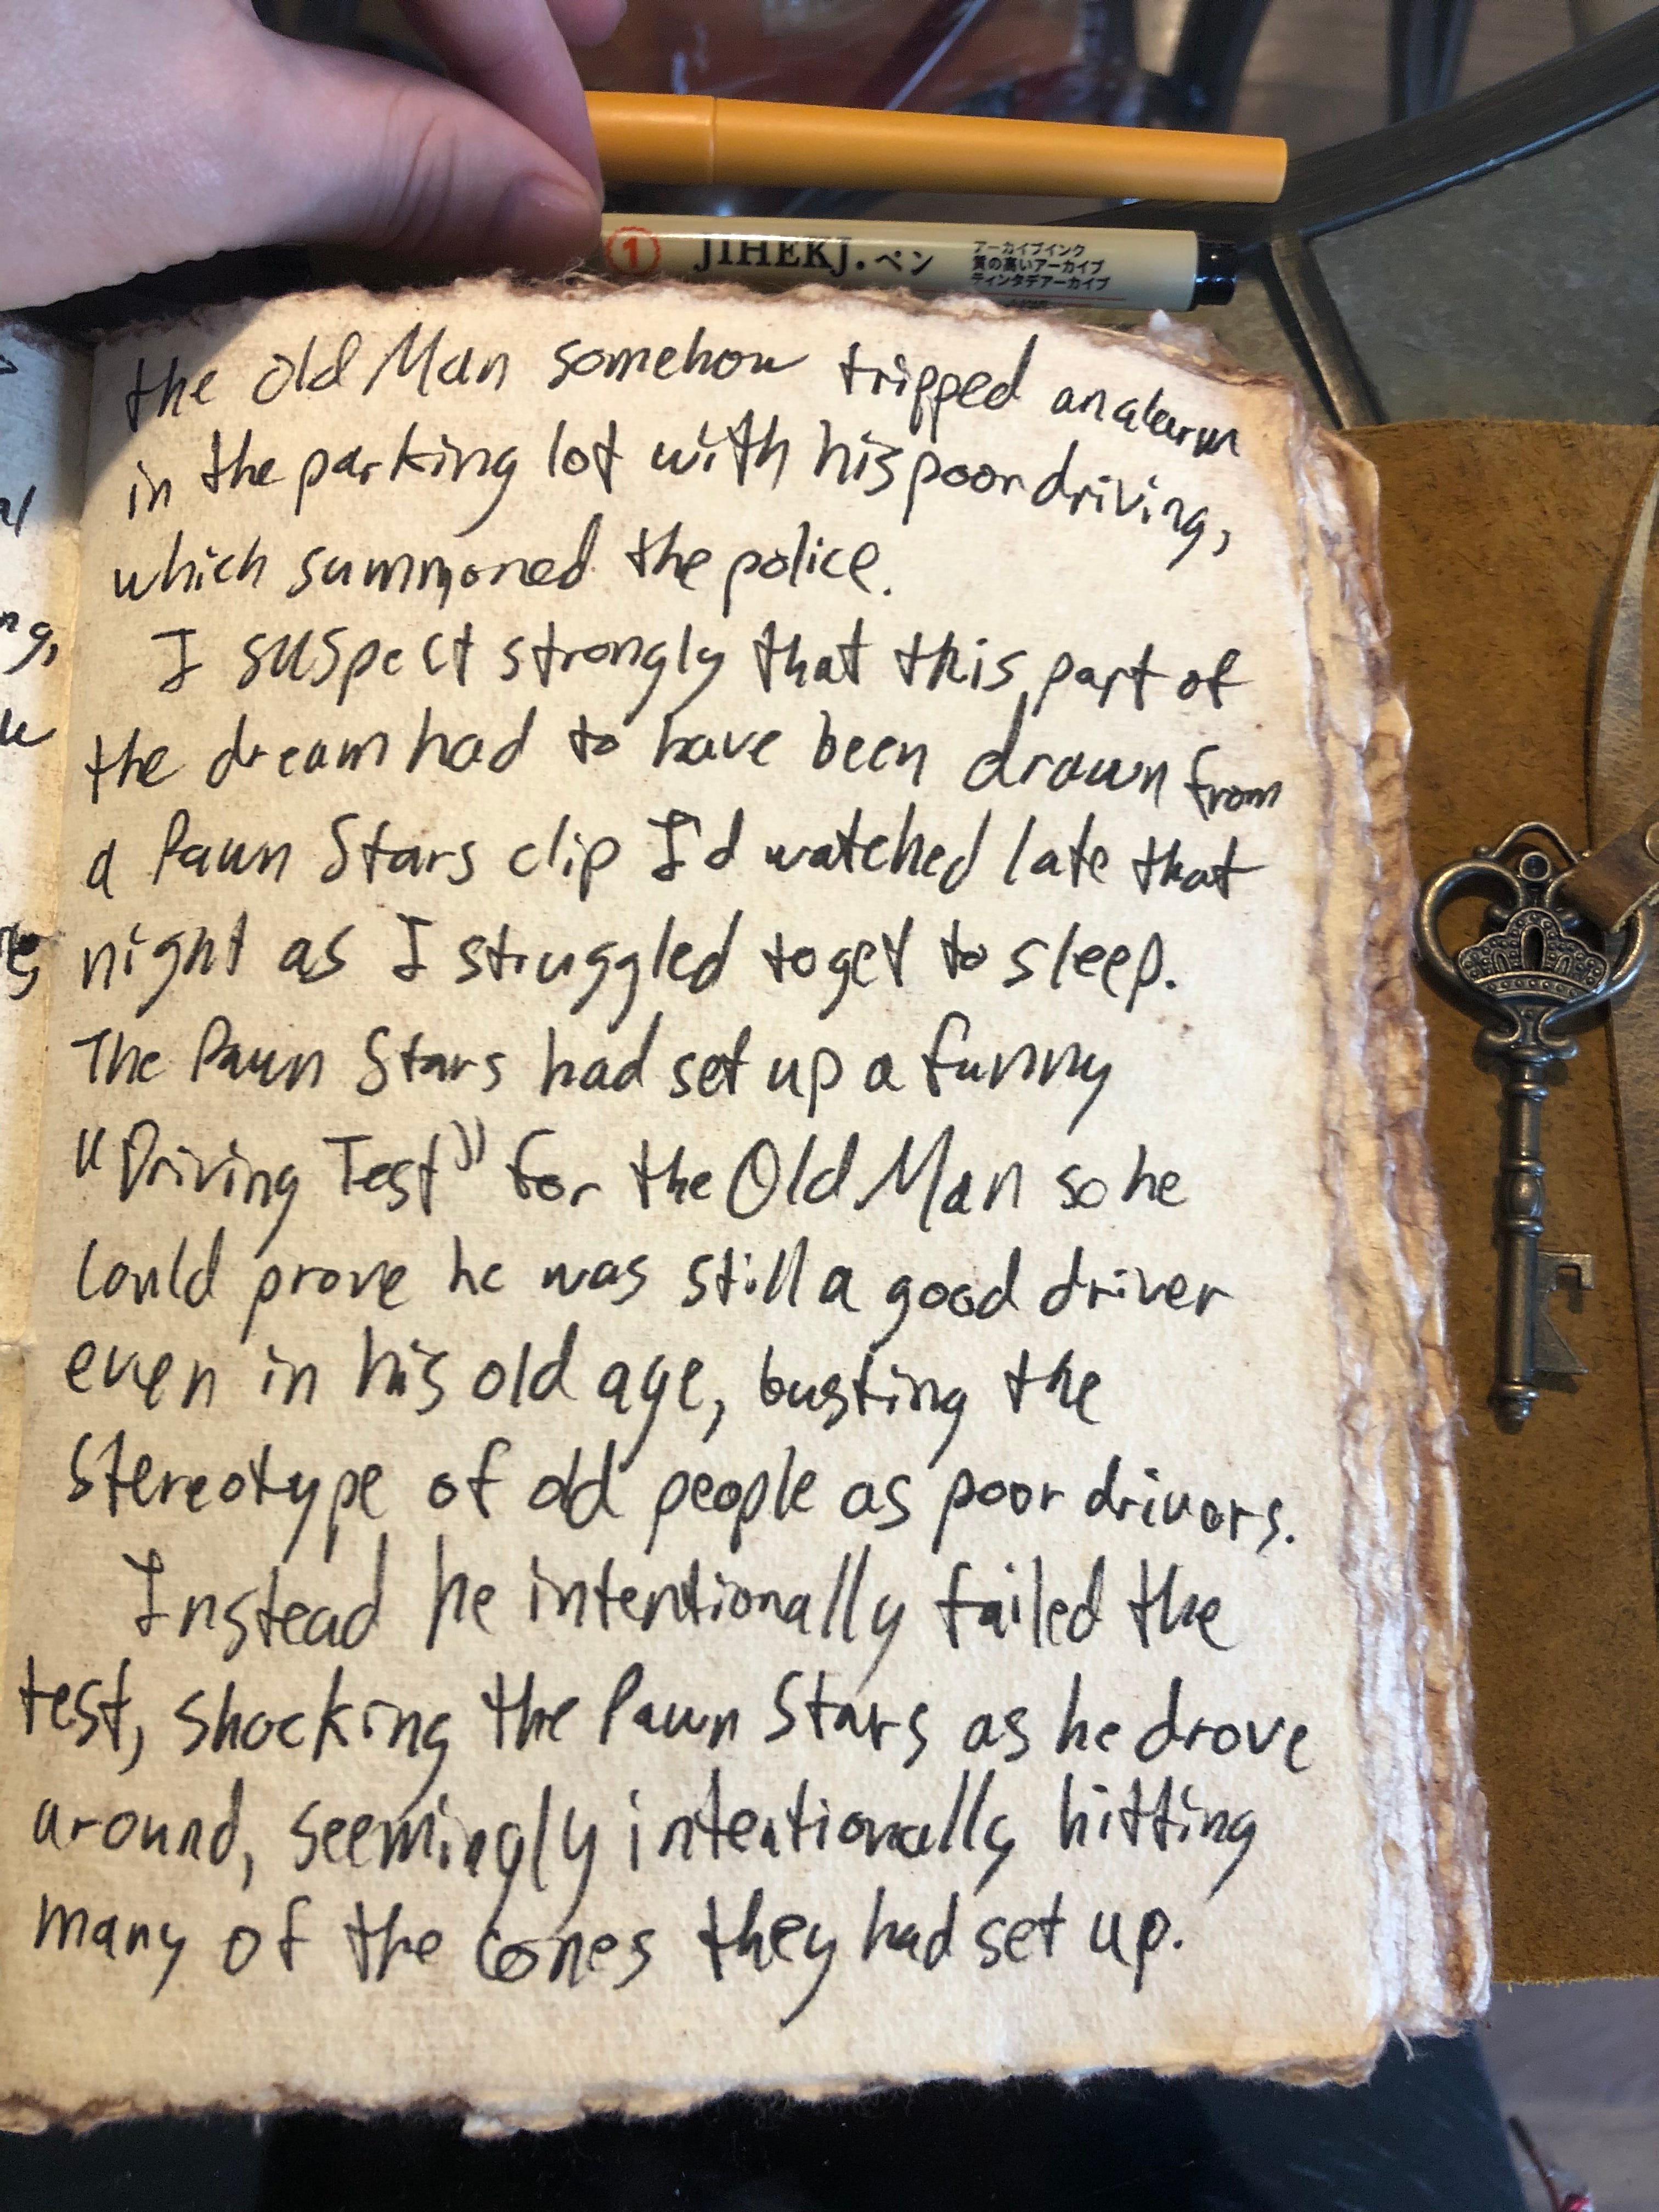 ① JIHEKJ.ペン
アーカイブインク
質の高いアーカイブ
ティンタデアーカイブ
the Old Man somehow tripped an alarm
in the parking lot with his poor driving,
which summoned the police.
I suspect strongly that this part of
the dream had to have been drawn from
a Pawn Stars clip I'd watched late that
night as I struggled to get to sleep.
The Pawn Stars had set up a funny
"Driving Test" for the Old Man so he
could prove he was still a good driver
even in his old age, busting the
stereotype of old people as poor drivers.
Instead he intentionally failed the
test, shocking the Pawn Stars as he drove
around, seemingly intentionally hitting
many of the cones they had set up.